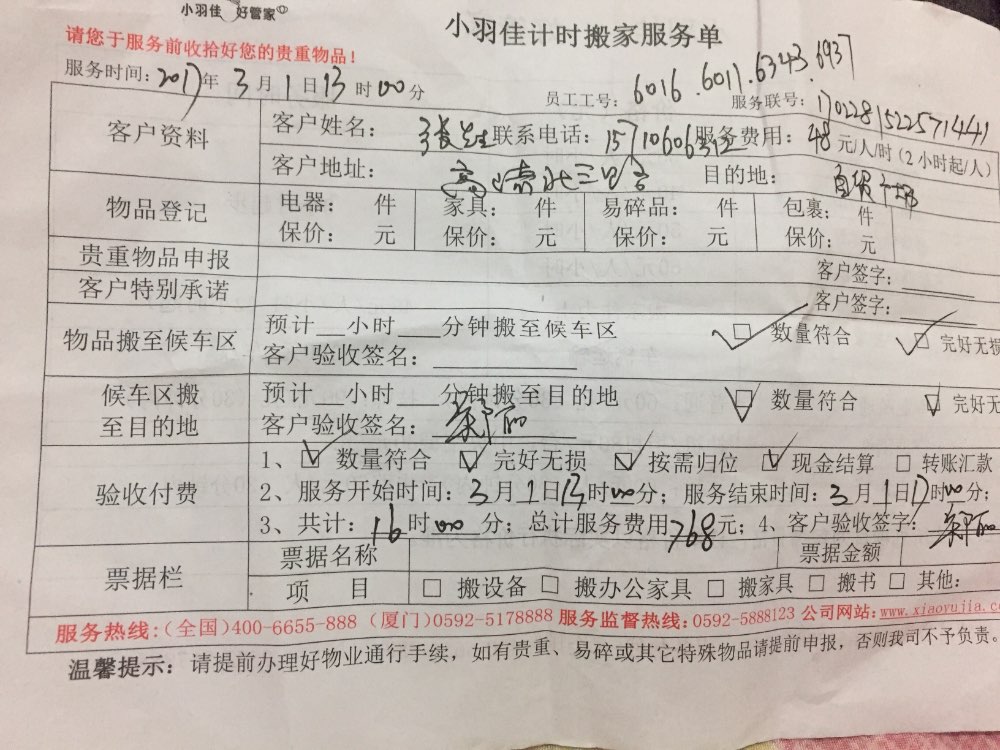 小羽佳 好管家
小羽佳计时搬家服务单
请您于服务前收拾好您的贵重物品!
服务时间: 2017年3月1日13时00分
员工工号: 6016.6011.6343.6937
服务联号: 1702281522571441
客户资料
客户姓名: 张先生 联系电话: 15710606 服务费用: 48元/人/时(2小时起/人)
客户地址: 目的地:
物品登记
电器: 件 家具: 件 易碎品: 件 包裹: 件
保价: 元 保价: 元 保价: 元 保价: 元
贵重物品申报 客户签字:
客户特别承诺 客户签字:
物品搬至候车区
预计__小时___分钟搬至候车区 □数量符合 □完好无损
客户验收签名:
候车区搬至目的地
预计__小时___分钟搬至目的地 □数量符合 □完好无
客户验收签名:
验收付费
1、□数量符合 □完好无损 □按需归位 □现金结算 □转账汇款
2、服务开始时间: 3月1日13时00分; 服务结束时间: 3月1日17时00分;
3、共计: 16时00分; 总计服务费用768元; 4、客户验收签字:
票据栏
票据名称 票据金额
项 目 □搬设备 □搬办公家具 □搬家具 □搬书 □其他:
服务热线:(全国)400-6655-888 (厦门)0592-5178888 服务监督热线:0592-5888123 公司网站:www.xiaoyujia.c
温馨提示: 请提前办理好物业通行手续,如有贵重、易碎或其它特殊物品请提前申报,否则我司不予负责。